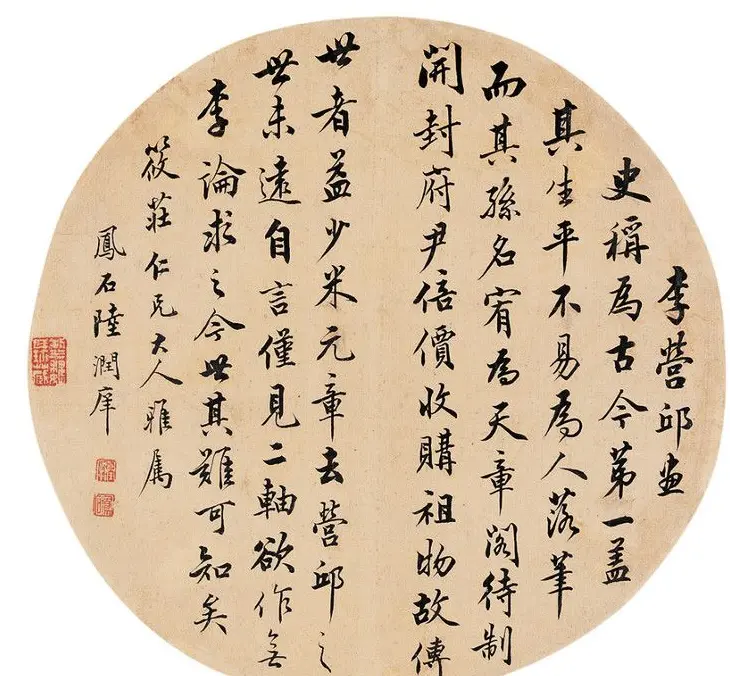 李營邱畫
史稱為古今第一蓋
其生平不易為人落筆
而其孫名宥為天章閣待制
開封府尹倍價收購祖物故傳
世者益少米元章去營邱之
世未遠自言僅見二軸欲作無
李論求之今世其難可知矣
筱莊仁兄大人雅屬
鳳石陸潤庠